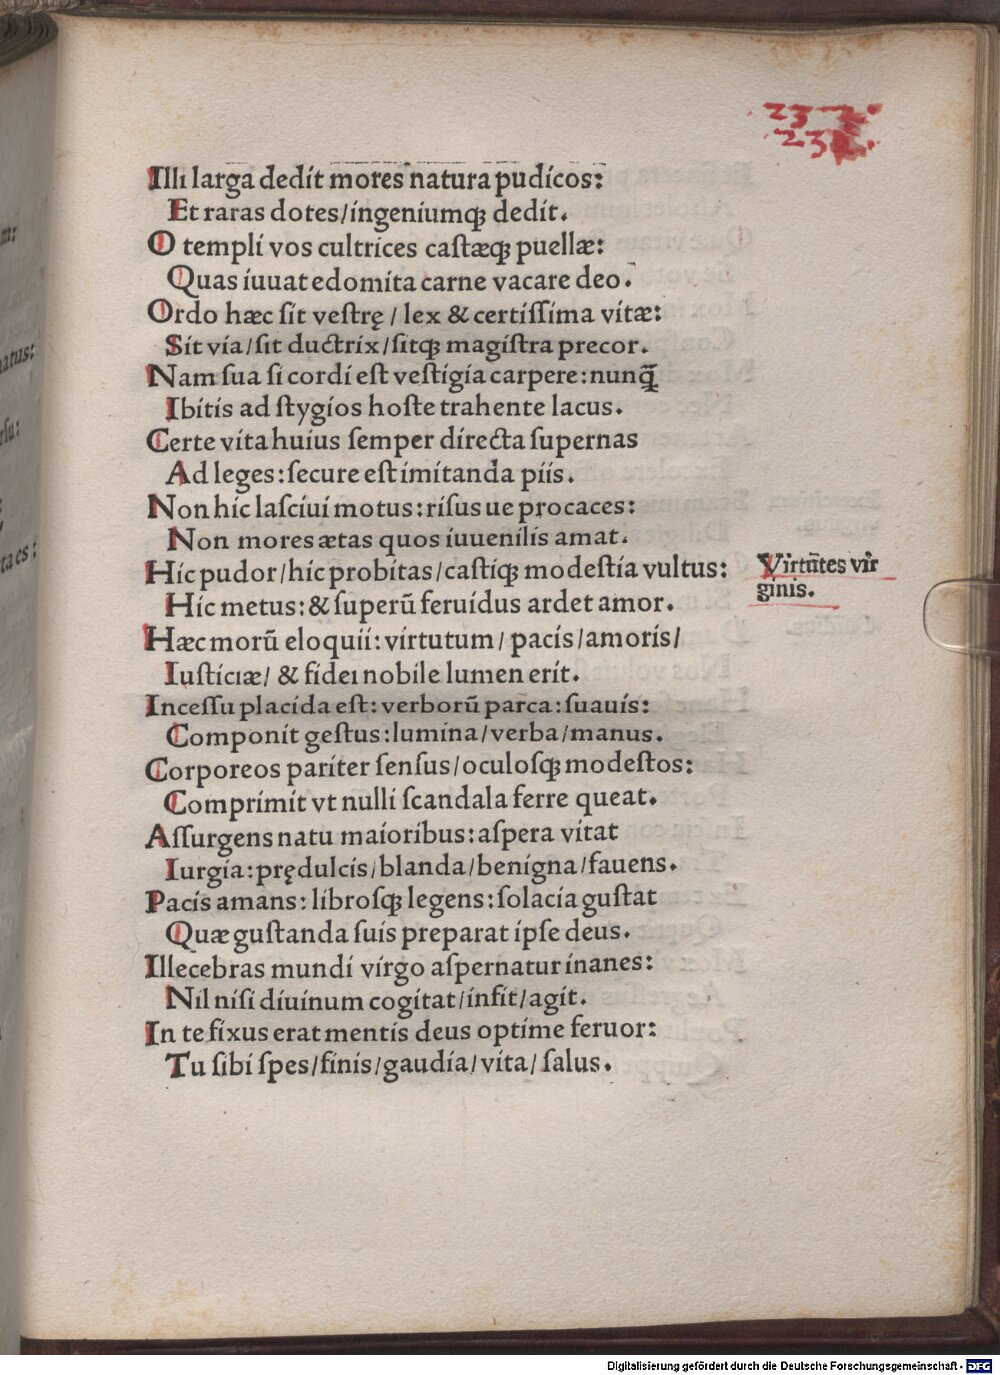 Illi larga dedit mores natura pudicos:
Et raras dotes/ingeniumqꝫ dedit.
O templi vos cultrices caſtæqꝫ puellæ:
Quas iuuat edomita carne vacare deo.
Ordo hæc ſit veſtrę / lex & certiſſima vitæ:
Sit via/ſit ductrix/ſitqꝫ magiſtra precor.
Nam ſua ſi cordi eſt veſtigia carpere:nunꝗ̃
Ibitis ad ſtygios hoſte trahente lacus.
Certe vita huius ſemper directa ſupernas
Ad leges:ſecure eſt imitanda piis.
Non hic laſciui motus:riſus ue procaces:
Non mores ætas quos iuuenilis amat.
Hic pudor/hic probitas/caſtiqꝫ modeſtia vultus:
Virtūtes vir
ginis.
Hic metus:& ſuperū feruidus ardet amor.
Hæc morū eloquii:virtutum/ pacis/amoris/
Iuſticiæ/ & fidei nobile lumen erit.
Inceſſu placida eſt:verborū parca:ſuauis:
Componit geſtus:lumina/verba/manus.
Corporeos pariter ſenſus/oculoſqꝫ modeſtos:
Comprimit vt nulli ſcandala ferre queat.
Aſſurgens natu maioribus:aſpera vitat
Iurgia:prędulcis/blanda/benigna/fauens.
Pacis amans:libroſqꝫ legens:ſolacia guſtat
Quæ guſtanda ſuis preparat ipſe deus.
Illecebras mundi virgo aſpernatur inanes:
Nil niſi diuinum cogitat/infit/agit.
In te fixus erat mentis deus optime feruor:
Tu ſibi ſpes/finis/gaudia/vita/ſalus.
Digitalisierung gefördert durch die Deutsche Forschungsgemeinschaft - DFG